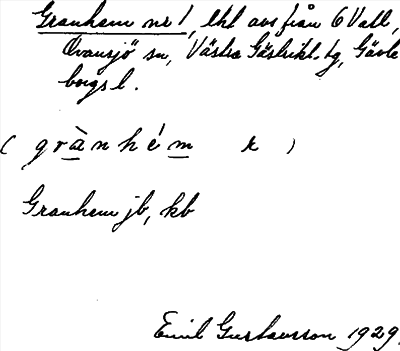 Granhem nr 1, lht avs från 6 Vall,
Ovansjö sn, Västra Gästrikl. tg, Gävle
borgs l.
( grànhém r )
Granhem jb, kb
Emil Gustavsson 1929.